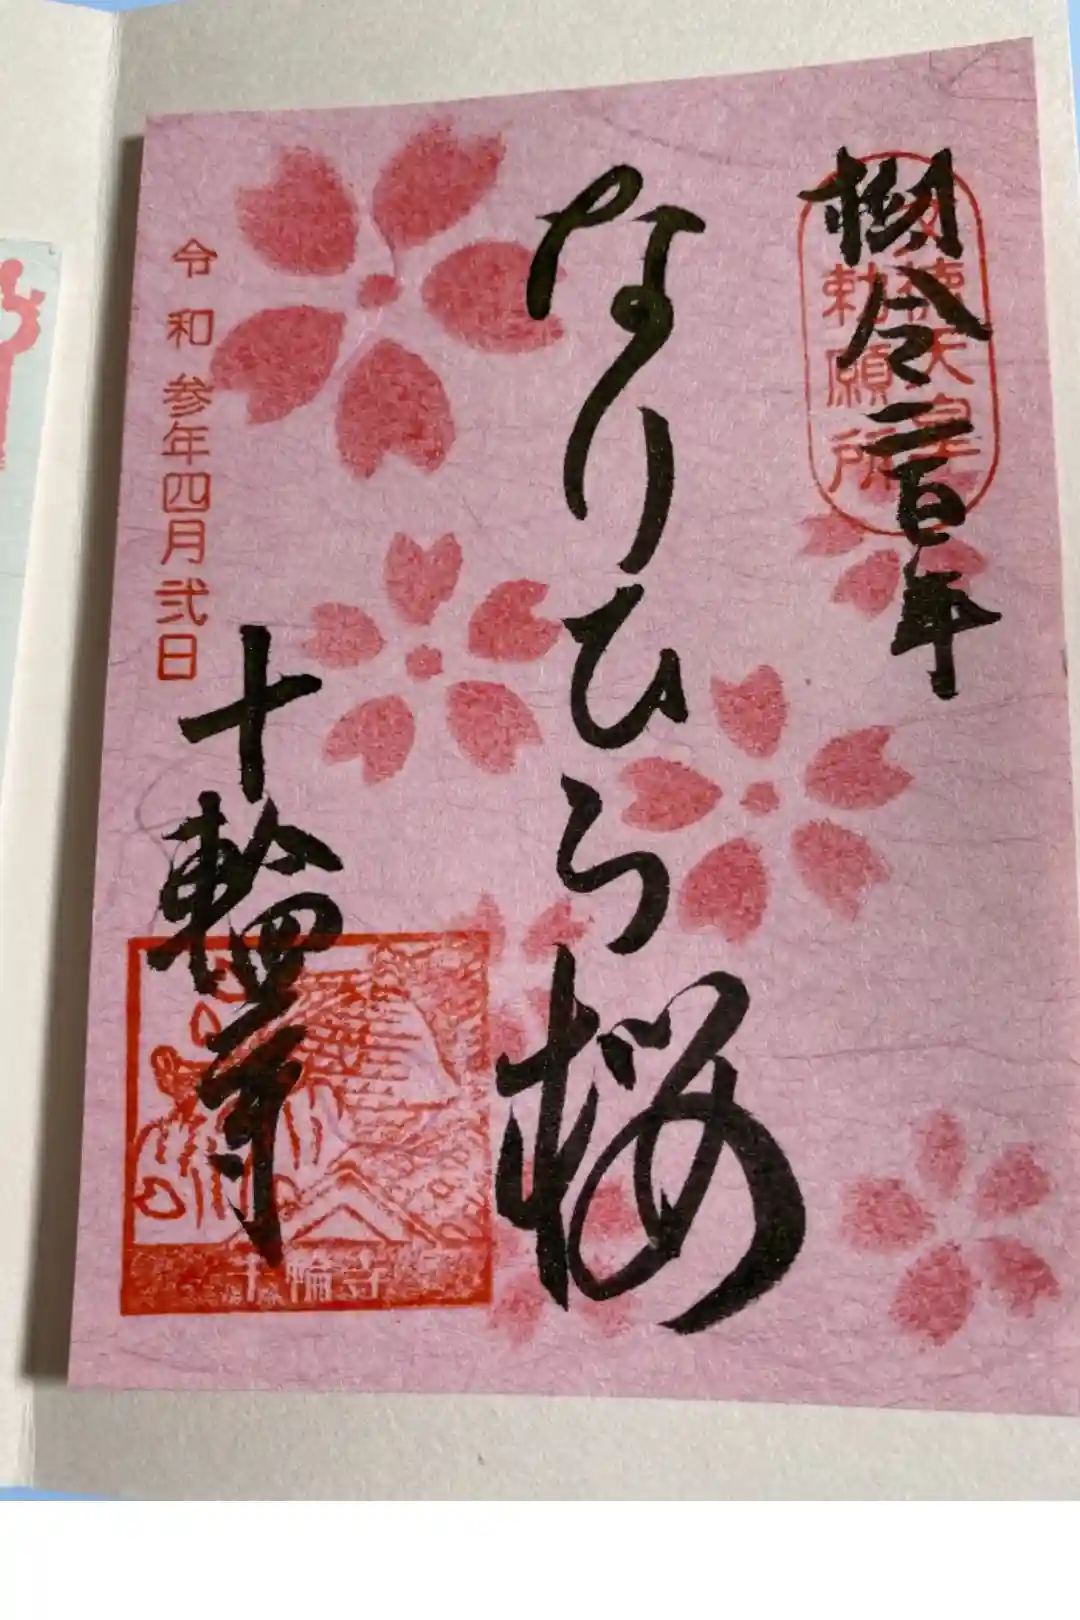 樹令二百年
文徳天皇
勅願所
なりひら桜
令和参年四月弐日
十輪寺
十輪寺